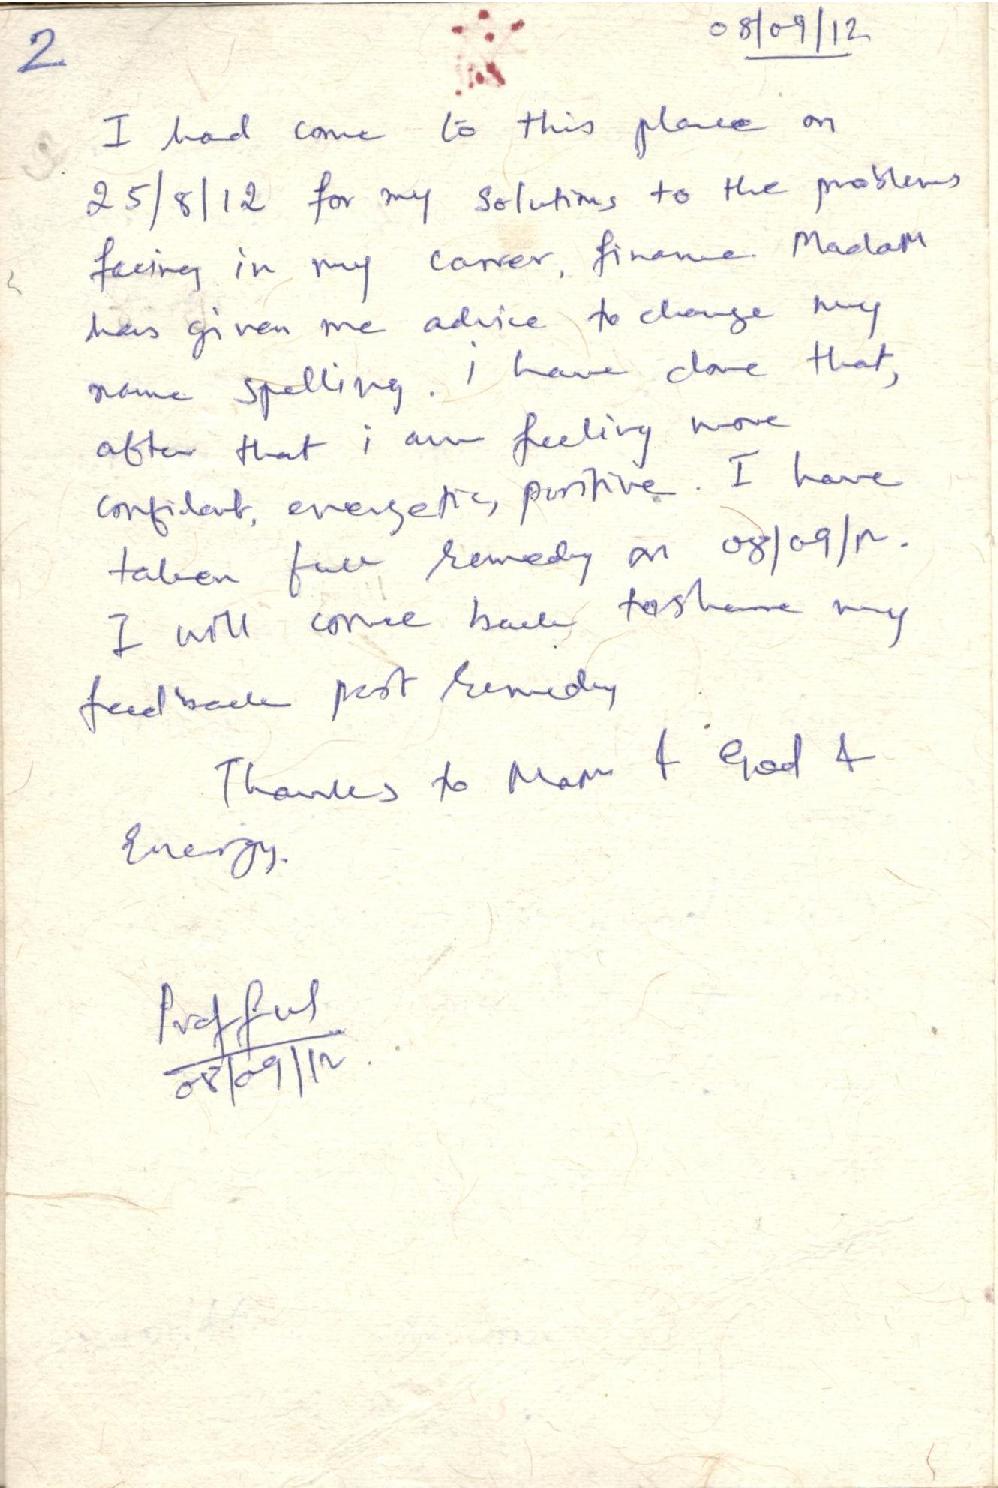 2
08/09/12
I had come to this place on
25/8/12 for my solutions to the problems
facing in my carrer, finance. Madam
has given me advice to change my
name spelling. i have done that,
after that i am feeling more
confident, energetic, positive. I have
taken full remedy on 08/09/12.
I will come back to share my
feedback post remedy
Thanks to Mam & God &
Energy.
Profful
08/09/12.